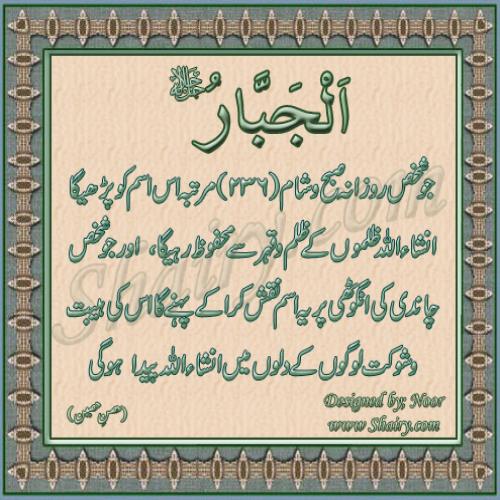 اَلْجَبَّارُ ﷻ
جو شخص روزانہ صبح و شام (۲۳۶) مرتبہ اس اسم کو پڑھیگا
انشاء اللہ ظلموں کے ظلم و قہر سے محفوظ رہیگا، اور جو شخص
چاندی کی انگوٹھی پر یہ اسم نقش کرا کے پہنے گا اس کی ہیبت
و شوکت لوگوں کے دلوں میں انشاء اللہ پیدا ہوگی
(حصن حصین)
Designed by; Noor
www.Shairy.com
Shairy.com